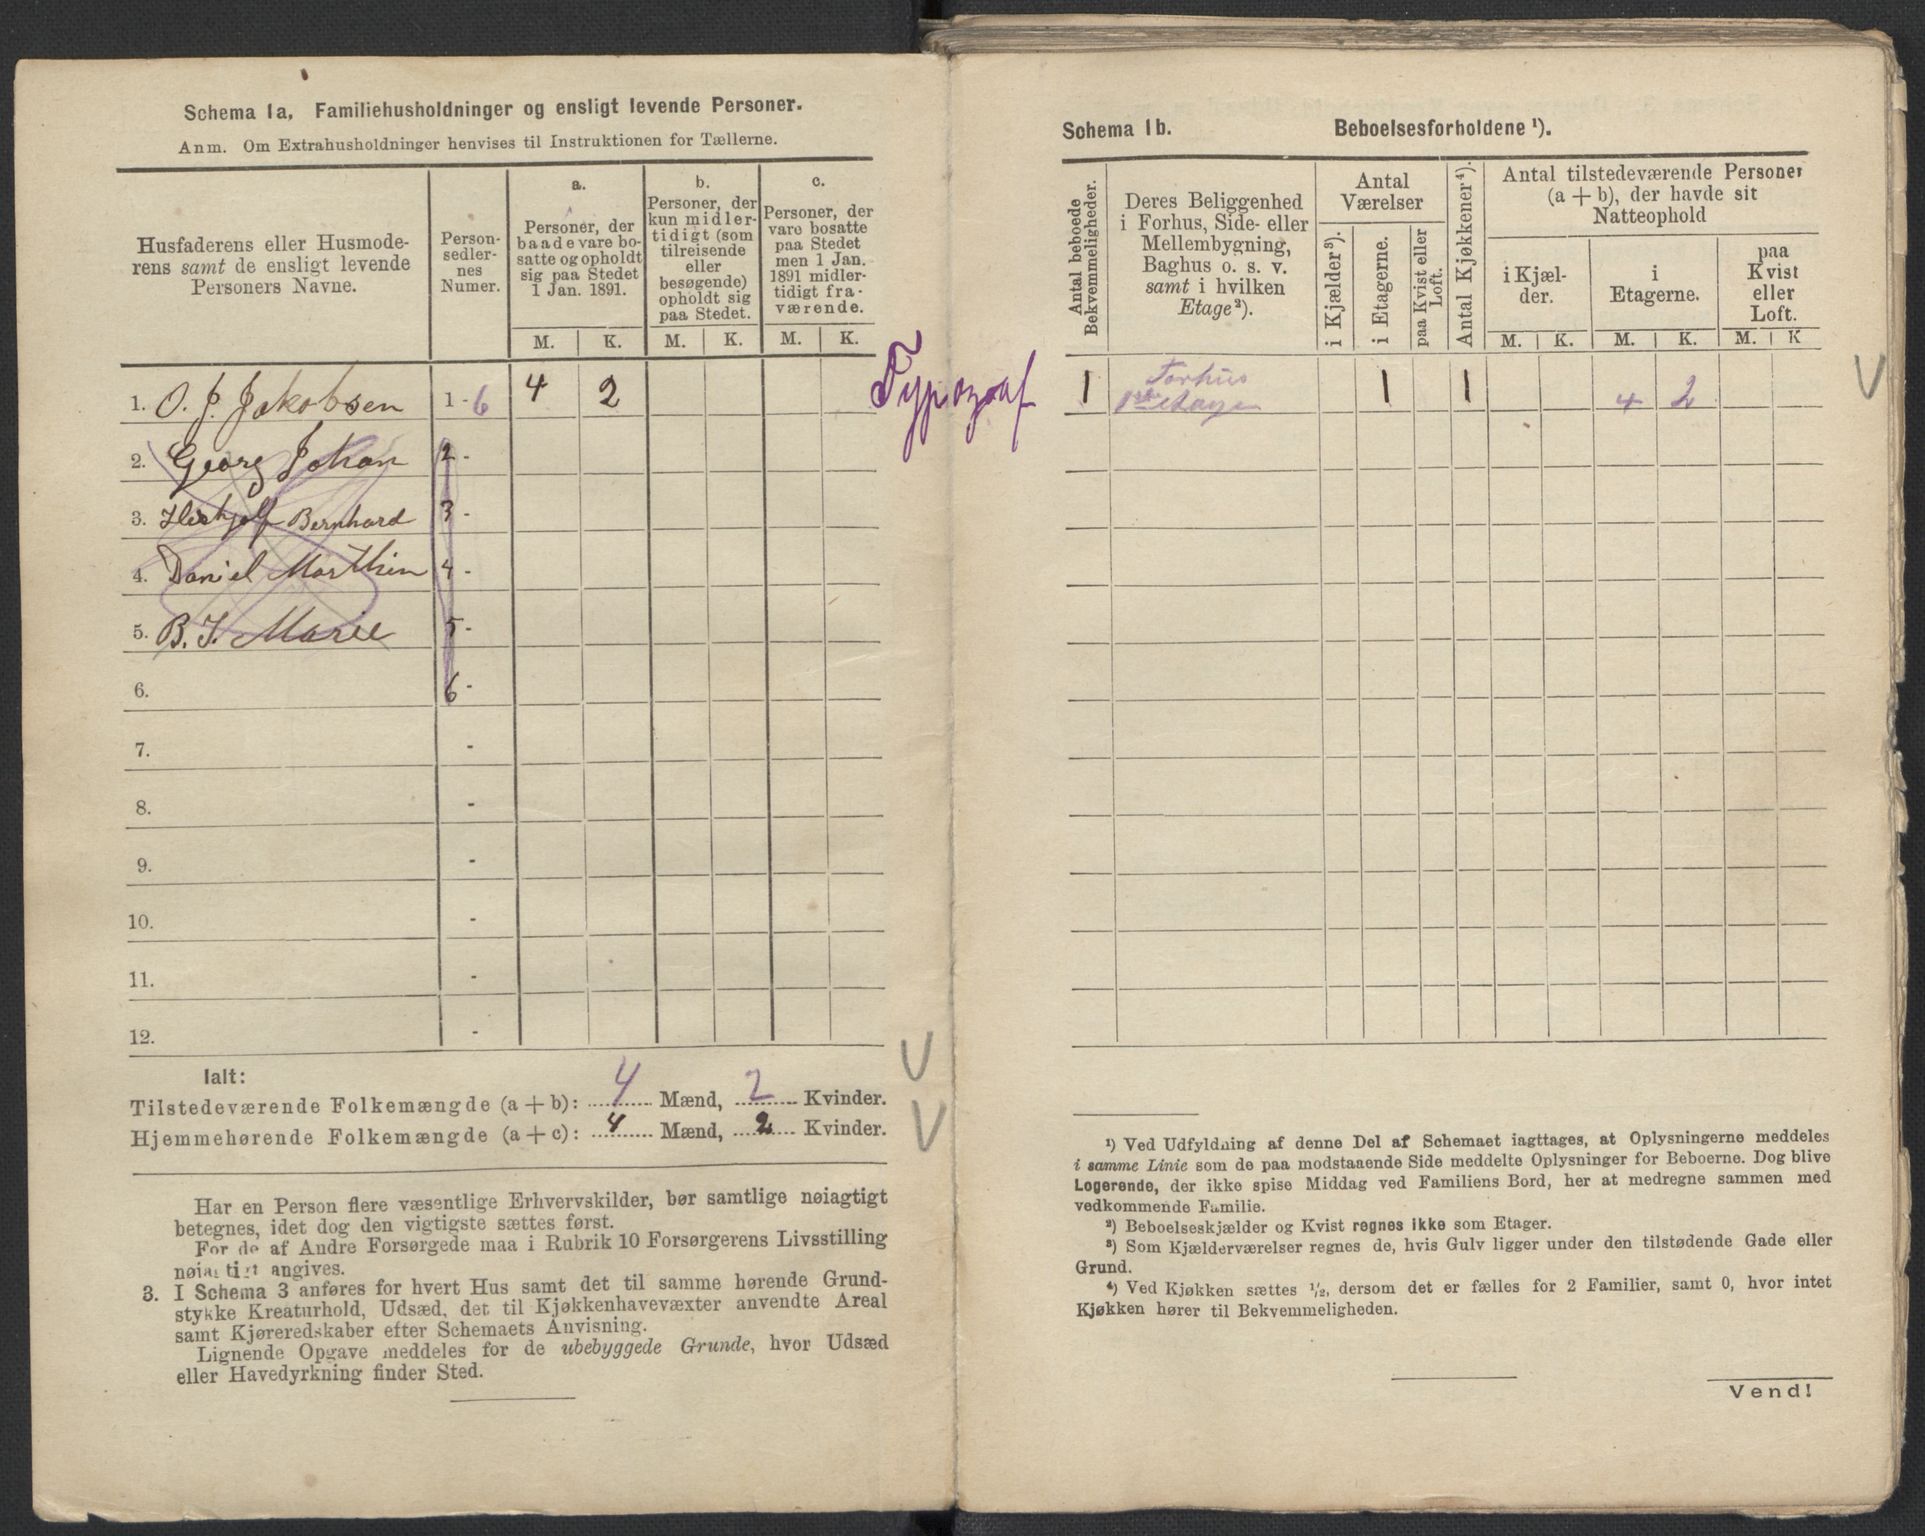 Schema 1a, Familiehusholdninger og ensligt levende Personer.
Anm. Om Extrahusholdninger henvises til Instruktionen for Tællerne.
Husfaderens eller Husmode-
rens samt de ensligt levende
Personers Navne.
Person-
sedler-
nes
Numer.
a.
Personer, der
baade vare bo-
satte og opholdt
sig paa Stedet
1 Jan. 1891.
b.
Personer, der
kun midler-
tidigt (som
tilreisende
eller
besøgende)
opholdt sig
paa Stedet.
c.
Personer, der
vare bosatte
paa Stedet
men 1 Jan.
1891 midler-
tidigt fra-
værende.
M. K. M. K. M. K.
1. O. J. Jakobsen 1 - 6 4 2
2. Georg Johan 2 -
3. Bernhard 3 -
4. Daniel Marthin 4 -
5. B. J. Marie 5 -
6. 6 -
7. -
8. -
9. -
10. -
11. -
12. -
Ialt:
Tilstedeværende Folkemængde (a + b): 4 Mænd, 2 Kvinder.
Hjemmehørende Folkemængde (a + c): 4 Mænd, 2 Kvinder.
Har en Person flere væsentlige Erhvervskilder, bør samtlige nøiagtigt
betegnes, idet dog den vigtigste sættes først.
For de af Andre Forsørgede maa i Rubrik 10 Forsørgerens Livsstilling
nøiagtigt angives.
3. I Schema 3 anføres for hvert Hus samt det til samme hørende Grund-
stykke Kreaturhold, Udsæd, det til Kjøkkenhavevæxter anvendte Areal
samt Kjøreredskaber efter Schemaets Anvisning.
Lignende Opgave meddeles for de ubebyggede Grunde, hvor Udsæd
eller Havedyrkning finder Sted.
Schema 1b. Beboelsesforholdene ¹).
Antal beboede
Bekvemmeligheder.
Deres Beliggenhed
i Forhus, Side- eller
Mellembygning,
Baghus o. s. v.
samt i hvilken
Etage²).
Antal
Værelser
i Kjælder³).
i Etagerne.
paa Kvist eller
Loft.
Antal Kjøkkener⁴).
Antal tilstedeværende Personer
(a + b), der havde sit
Natteophold
i Kjæl-
der.
i
Etagerne.
paa
Kvist
eller
Loft.
M. K. M. K. M. K
Typograf
1 Forhus 1 1 4 2
1ste Etage
¹) Ved Udfyldning af denne Del af Schemaet iagttages, at Oplysningerne meddeles
i samme Linie som de paa modstaaende Side meddelte Oplysninger for Beboerne. Dog blive
Logerende, der ikke spise Middag ved Familiens Bord, her at medregne sammen med
vedkommende Familie.
²) Beboelseskjælder og Kvist regnes ikke som Etager.
³) Som Kjælderværelser regnes de, hvis Gulv ligger under den tilstødende Gade eller
Grund.
⁴) Ved Kjøkken sættes ½, dersom det er fælles for 2 Familier, samt 0, hvor intet
Kjøkken hører til Bekvemmeligheden.
Vend!